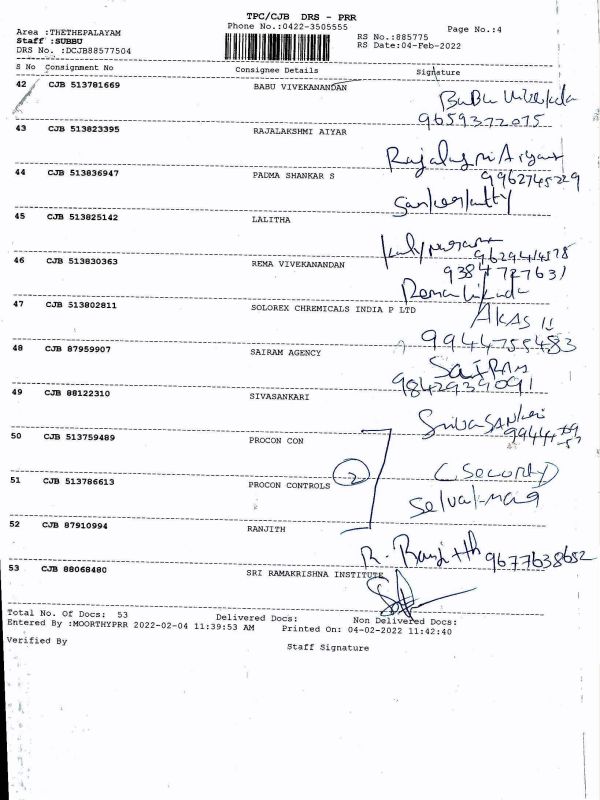 TPC/CJB DRS - PRR
Area :THETHEPALAYAM Phone No.:0422-3505555 Page No.:4
Staff :SUBBU RS No.:885775
DRS No. :DCJB88577504 RS Date:04-Feb-2022
S No Consignment No Consignee Details Signature
42 CJB 513781669 BABU VIVEKANANDAN
Babu
9659372075
43 CJB 513823395 RAJALAKSHMI AIYAR
44 CJB 513836947 PADMA SHANKAR S
9962745229
45 CJB 513825142 LALITHA
46 CJB 513830363 REMA VIVEKANANDAN
9384727631
Rema
47 CJB 513802811 SOLOREX CHREMICALS INDIA P LTD
AKASH
9944755483
48 CJB 87959907 SAIRAM AGENCY
SaiRam
9842939091
49 CJB 88122310 SIVASANKARI
50 CJB 513759489 PROCON CON
51 CJB 513786613 PROCON CONTROLS 2
(Security)
52 CJB 87910994 RANJITH
R. Ranjith 9677638652
53 CJB 88068480 SRI RAMAKRISHNA INSTITUTE
Total No. Of Docs: 53 Delivered Docs: Non Delivered Docs:
Entered By :MOORTHYPRR 2022-02-04 11:39:53 AM Printed On: 04-02-2022 11:42:40
Verified By Staff Signature